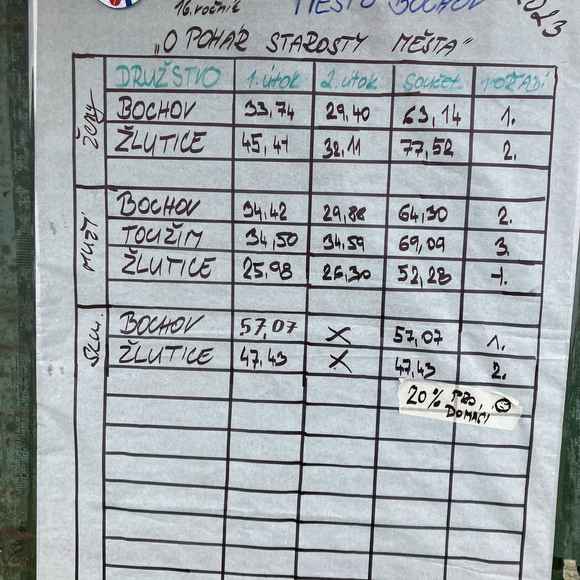 16. ročník MĚSTO BOCHOV 2023
„O POHÁR STAROSTY MĚSTA"
DRUŽSTVO 1. ÚTOK 2. ÚTOK SOUČET POŘADÍ
ŽENY
BOCHOV 33,74 29,40 63,14 1.
ŽLUTICE 45,41 32,11 77,52 2.
MUŽI
BOCHOV 34,42 29,88 64,30 2.
TOUŽIM 34,50 34,59 69,09 3.
ŽLUTICE 25,98 26,30 52,28 1.
BOCHOV 57,07 X 57,07 1.
ŽLUTICE 47,43 X 47,43 2.
20% PRO
DOMÁCÍ